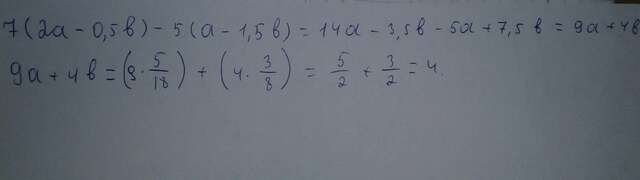 7(2а - 0,5в) - 5(а - 1,5в) = 14а - 3,5в - 5а + 7,5в = 9а + 4в
9а + 4в = (9 · 5/18) + (4 · 3/8) = 5/2 + 3/2 = 4.